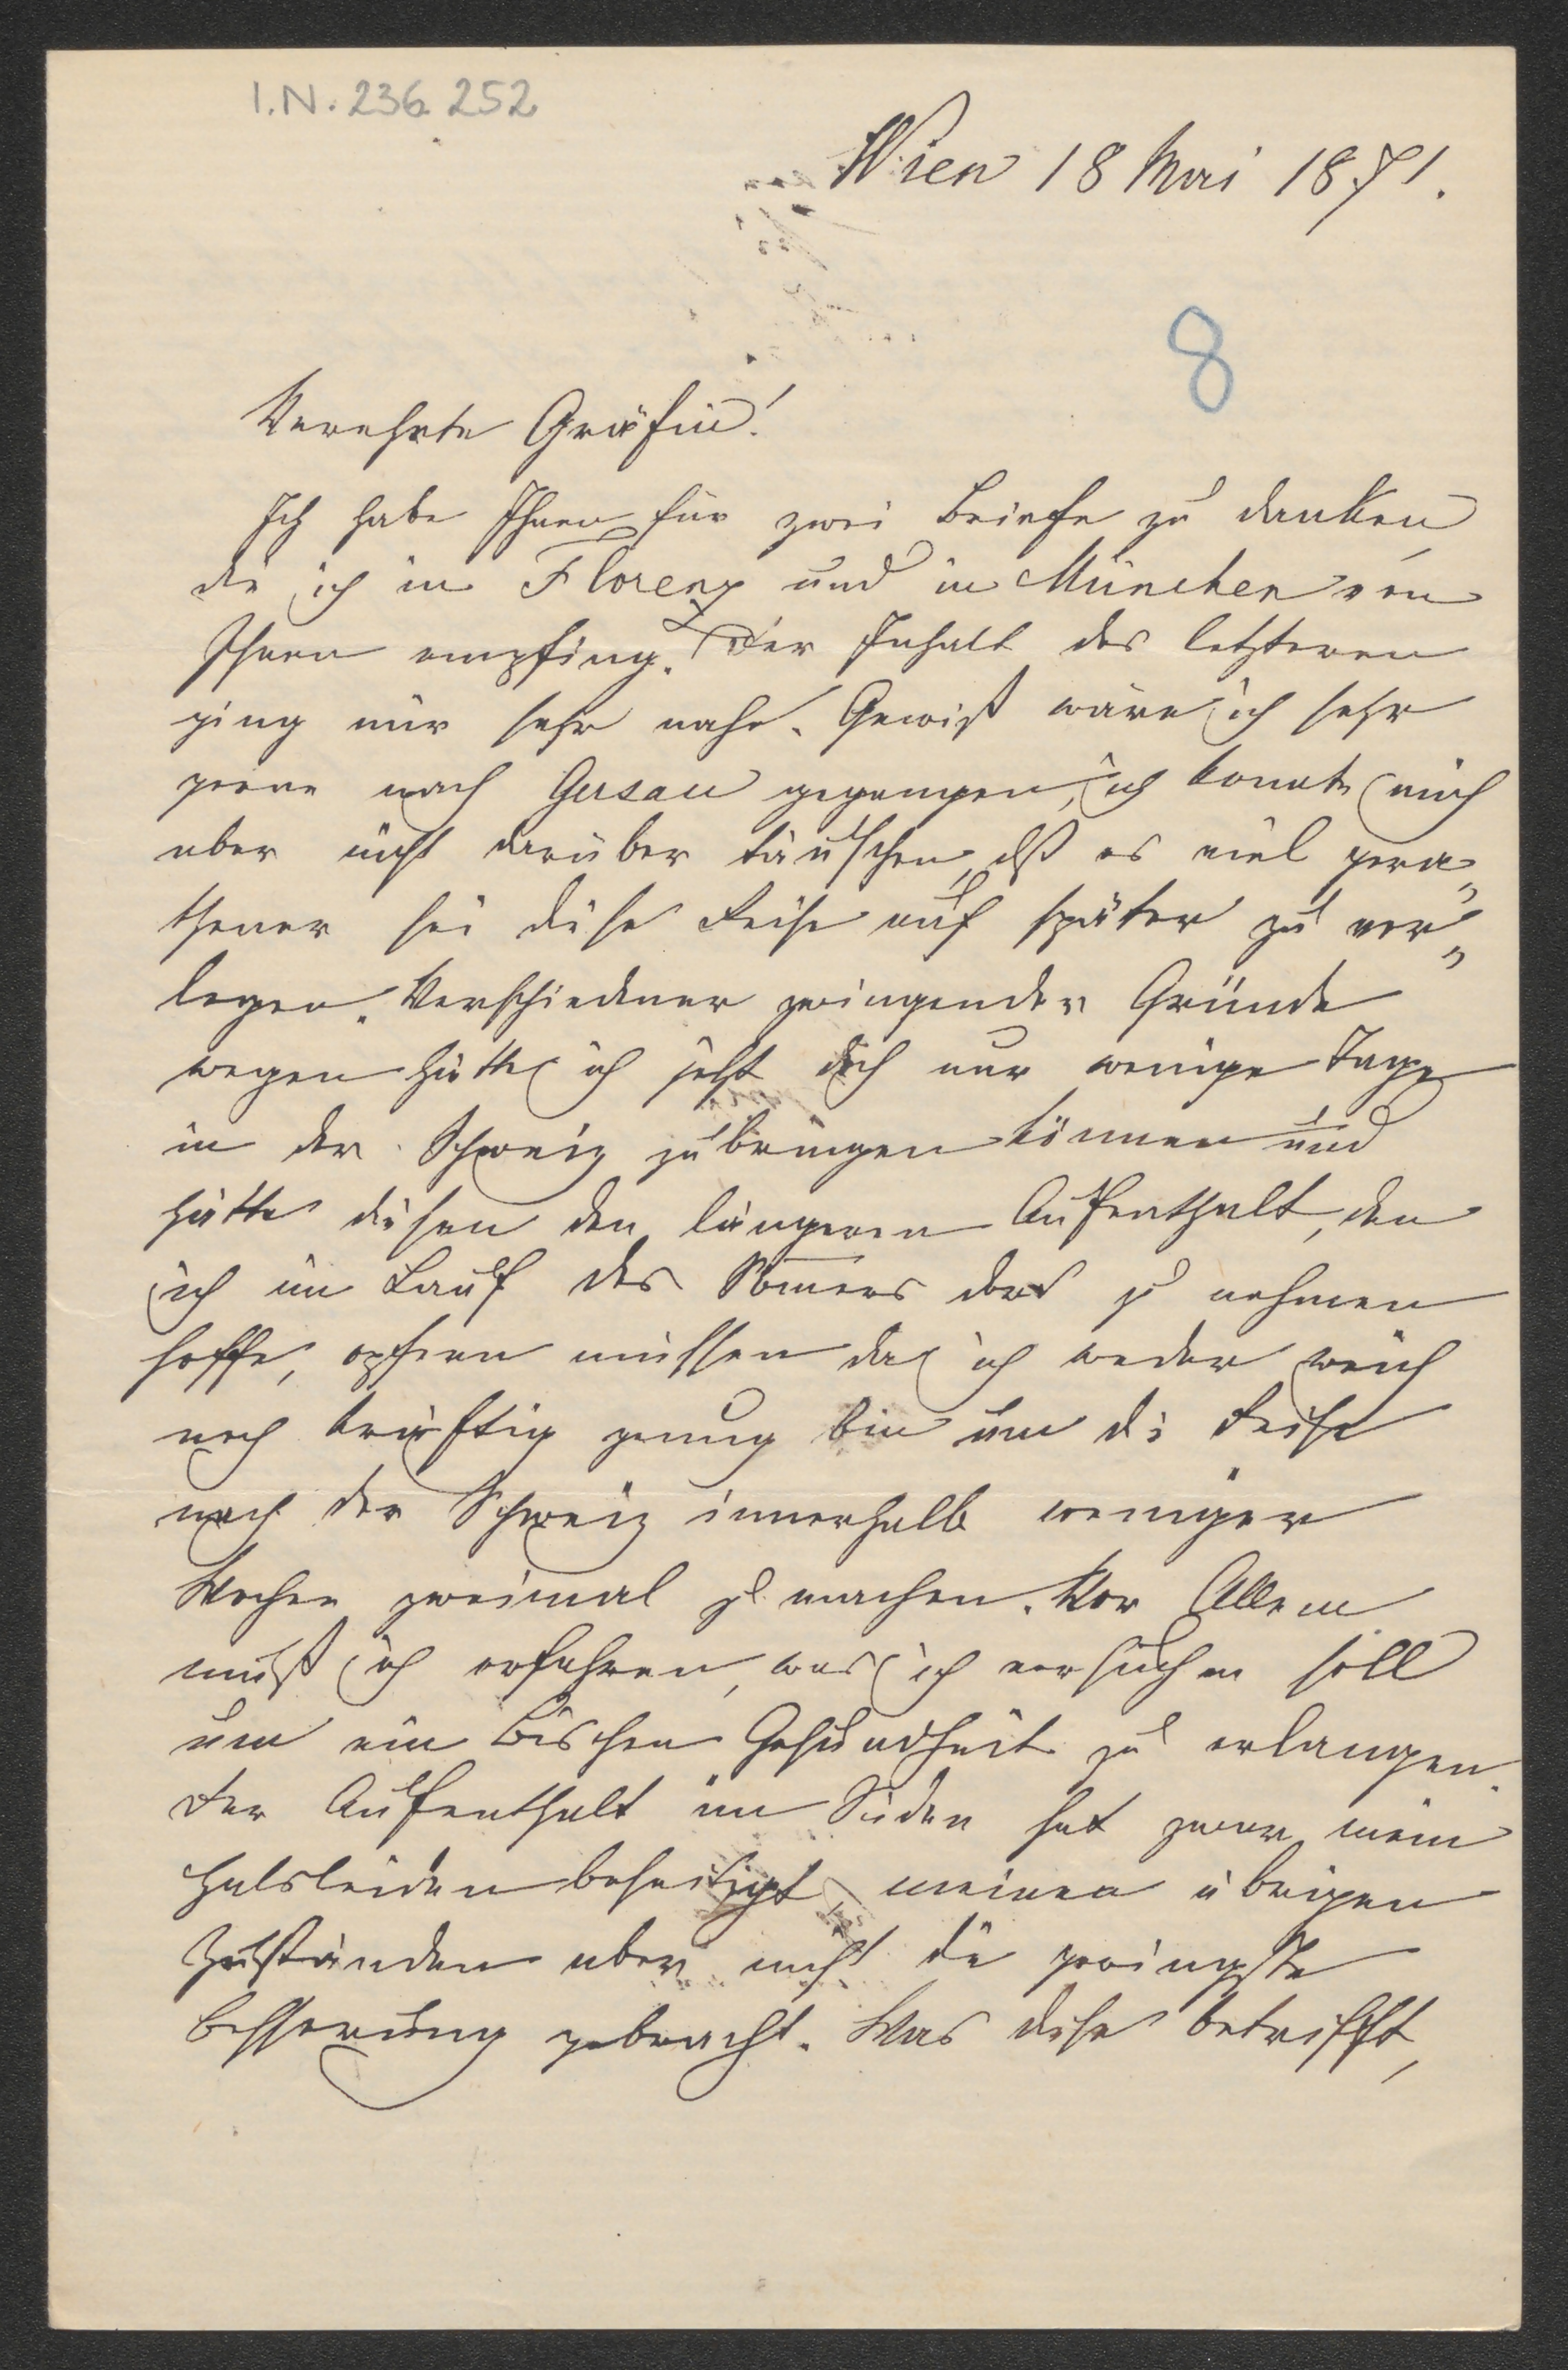 I.N. 236.252
Wien 18 Mai 1871.
8
Verehrte Gräfin!
Ich habe Ihnen für zwei Briefe zu danken
die ich in Florenz und in München von
Ihnen empfing. Der Inhalt des letzteren
ging mir sehr nahe. Gewiß wäre ich sehr
gerne nach Gersau gegangen, ich konnte mich
aber nicht darüber täuschen, dß es viel gera„
thener sei diese Reise auf später zu ver„
legen. Verschiedener zwingender Gründe
wegen hätte ich jetzt doch nur wenige Tage
in der Schweiz zubringen können und
hätte diesen den längeren Aufenthalt, den
ich im Lauf des Som̅ers dort zu nehmen
hoffe, opfern müssen da ich weder reich
noch kräftig genug bin um die Reise
nach der Schweiz innerhalb weniger
Wochen zweimal zu machen. Vor Allem
muß ich erfahren, was ich versuchen soll
um ein Bischen Gesundheit zu erlangen.
Der Aufenthalt im Süden hat zwar mein
Halsleiden beseitigt, meinen übrigen
Zuständen aber nicht die geringste
Besserung gebracht. Was diese betrifft,